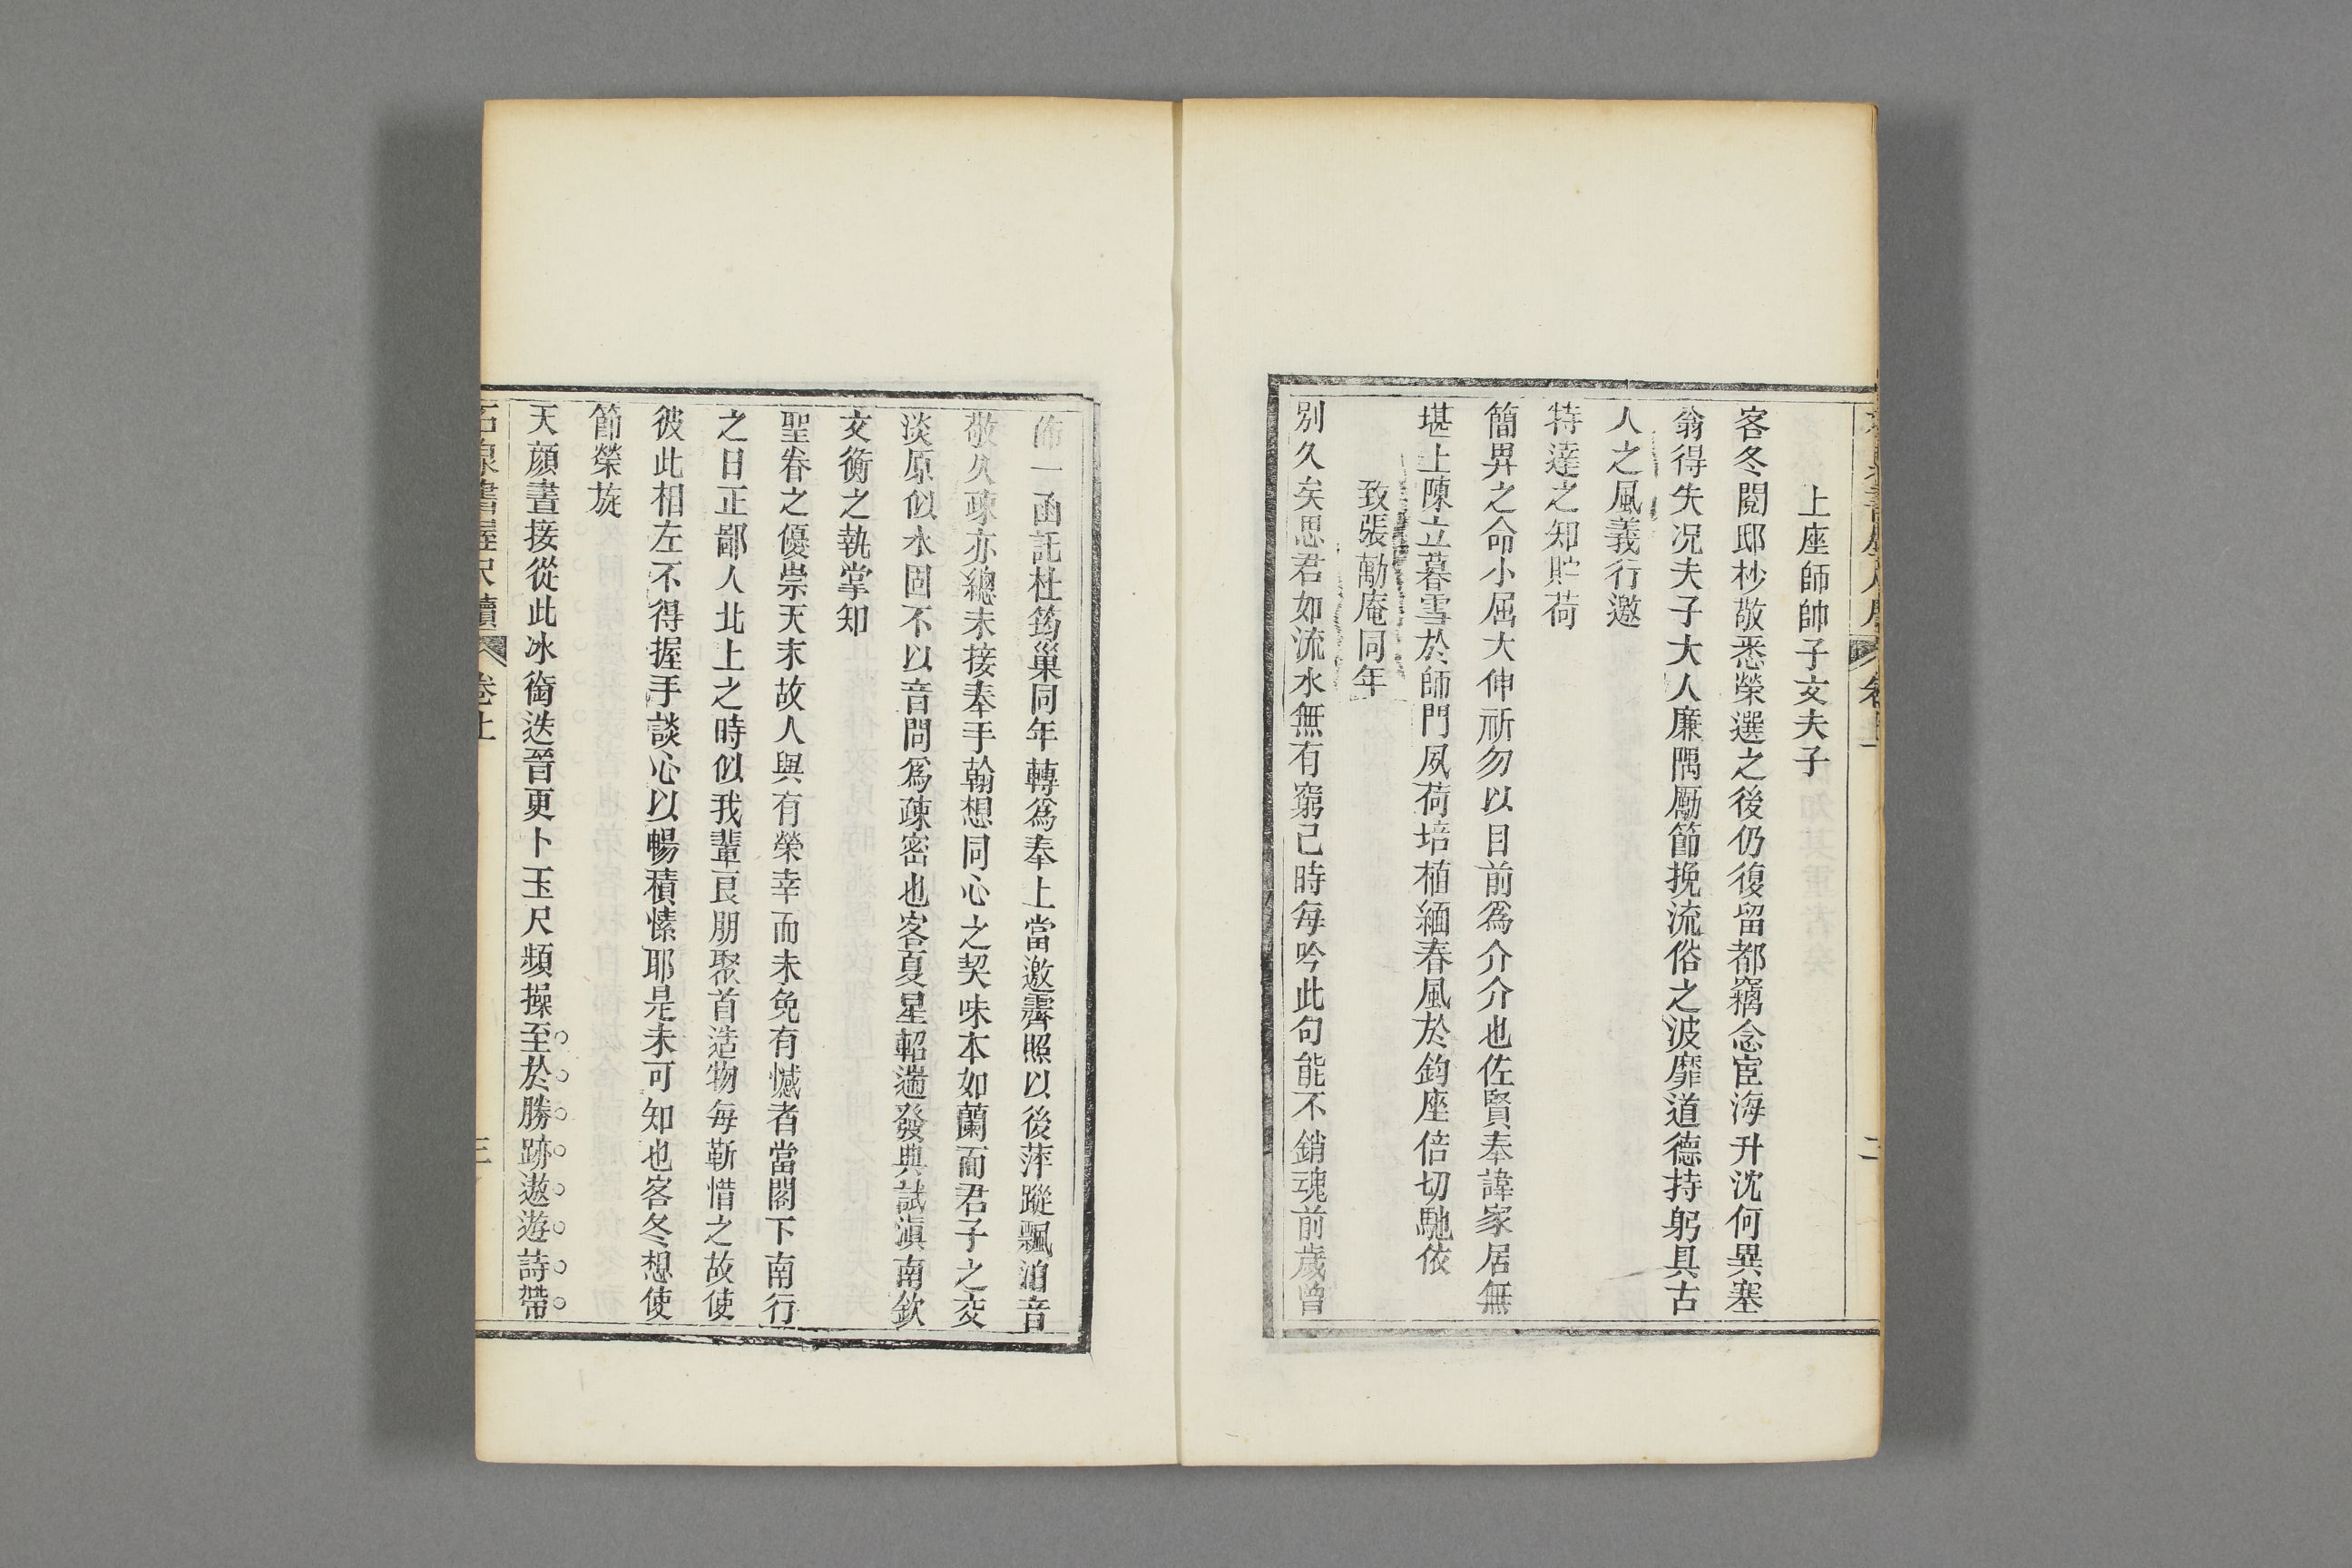 上座師帥子文夫子
客冬閱邸杪敬悉榮選之後仍復留都竊念宦海升沈何異塞
翁得失况夫子大人廉隅勵節挽流俗之波靡道德持躬具古
人之風義行邀
特達之知貯荷
簡畀之命小屈大伸祈勿以目前爲介介也佐賢奉諱家居無
堪上陳立暮雪於師門夙荷培植緬春風於鈞座倍切馳依
致張勱庵同年
別久矣思君如流水無有窮已時每吟此句能不銷魂前歲曾
佈一函託杜筠巢同年轉爲奉上當邀霽照以後萍蹤飄泊音
敬久疎亦總未接奉手翰想同心之契味本如蘭而君子之交
淡原似水固不以音問爲疎密也客夏星軺遄發典試滇南欽
文衡之執掌知
聖眷之優崇天末故人與有榮幸而未免有憾者當閣下南行
之日正鄙人北上之時似我輩良朋聚首造物每靳惜之故使
彼此相左不得握手談心以暢積愫耶是未可知也客冬想使
節榮旋
天顏晝接從此冰銜迭晉更卜玉尺頻操至於勝跡遨遊詩帶
石泉書屋尺牘 卷上 三